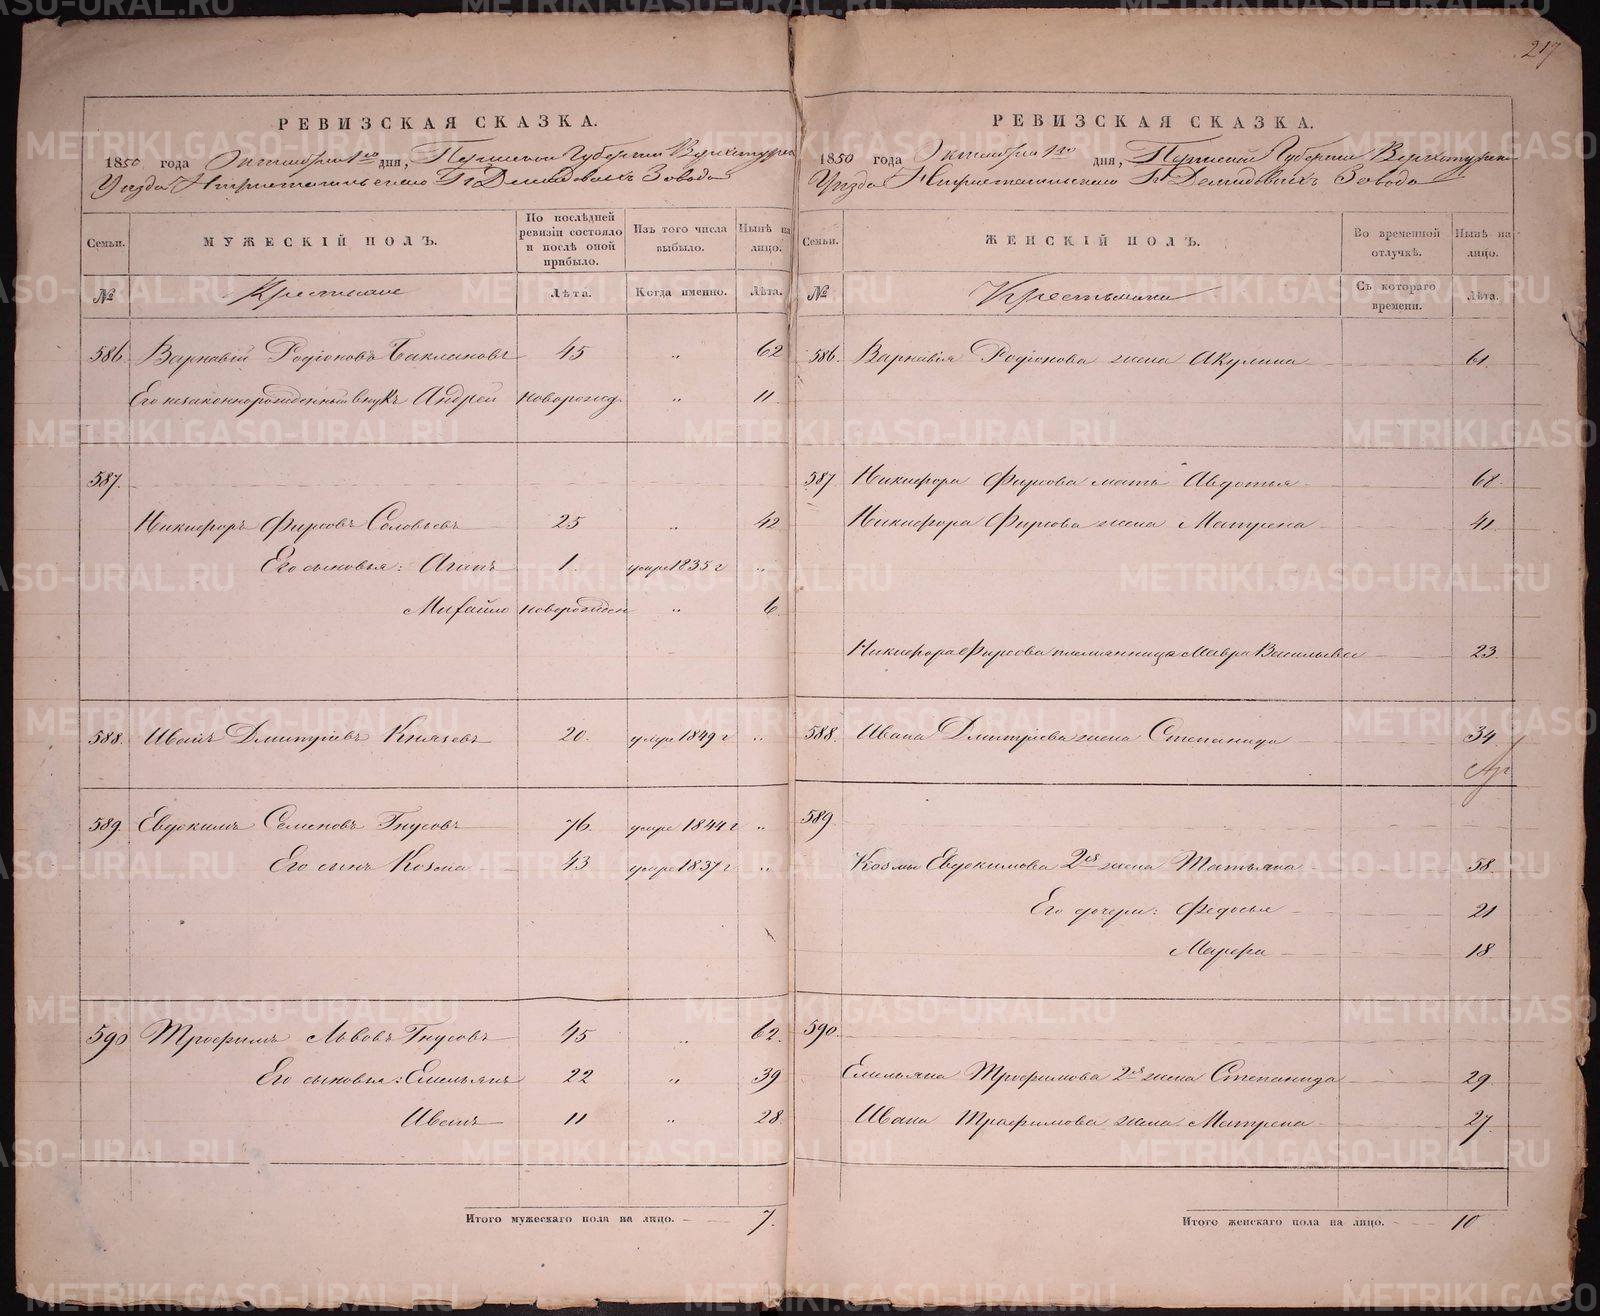 217
РЕВИЗСКАЯ СКАЗКА.
1850 года Октября 1го дня, Пермской Губернии Верхотурска
Уѣзда Нижнетагильскаго Гг Демидовыхъ Завода
Семьи. МУЖЕСКІЙ ПОЛЪ. По послѣдней ревизіи состояло и послѣ оной прибыло. Изъ того числа выбыло. Нынѣ на лицо.
№ Крестьяне Лѣта. Когда именно. Лѣта.
586. Варнавій Родіоновъ Баклановъ 45 „ 62
Его незаконнорожденный внукъ Андрей новорожд. „ 11
587.
Никифоръ Фирсовъ Соловьевъ 25 „ 42
Его сыновья: Агапъ 1. умре 1835 г „
Михайло новорожден „ 6.
588. Иванъ Дмитріевъ Князевъ 20. умре 1849 г „
589. Евдокимъ Семеновъ Гнусовъ 76. умре 1844 г „
Его сынъ Козма 43 умре 1837 г „
590 Трофимъ Львовъ Гнусовъ 45 „ 62.
Его сыновья: Емельянъ 22 „ 39
Иванъ 11 „ 28.
Итого мужескаго пола на лицо. 7.
РЕВИЗСКАЯ СКАЗКА.
1850 года Октября 1го дня, Пермской Губерніи Верхотурска
Уѣзда Нижнетагильскаго Гг Демидовыхъ Завода
Семьи. ЖЕНСКІЙ ПОЛЪ. Во временной отлучкѣ. Нынѣ на лицо.
№ Крестьянки Съ котораго времени. Лѣта.
586. Варнавія Родіонова жена Акулина 61.
587 Никифора Фирсова мать Авдотья
Никифора Фирсова жена Матрена 41
Никифора Фирсова племянница Мавра Васильева 23
588. Ивана Дмитріева жена Степанида 34
589
Козмы Евдокимова 2ая жена Татьяна 58
Его дочери: Федосья 21
18
590.
Емельяна Трофимова 2ая жена Степанида 29
Ивана Трофимова жена Матрена 27.
Итого женскаго пола на лицо. 10
METRIKI.GASO-URAL.RU